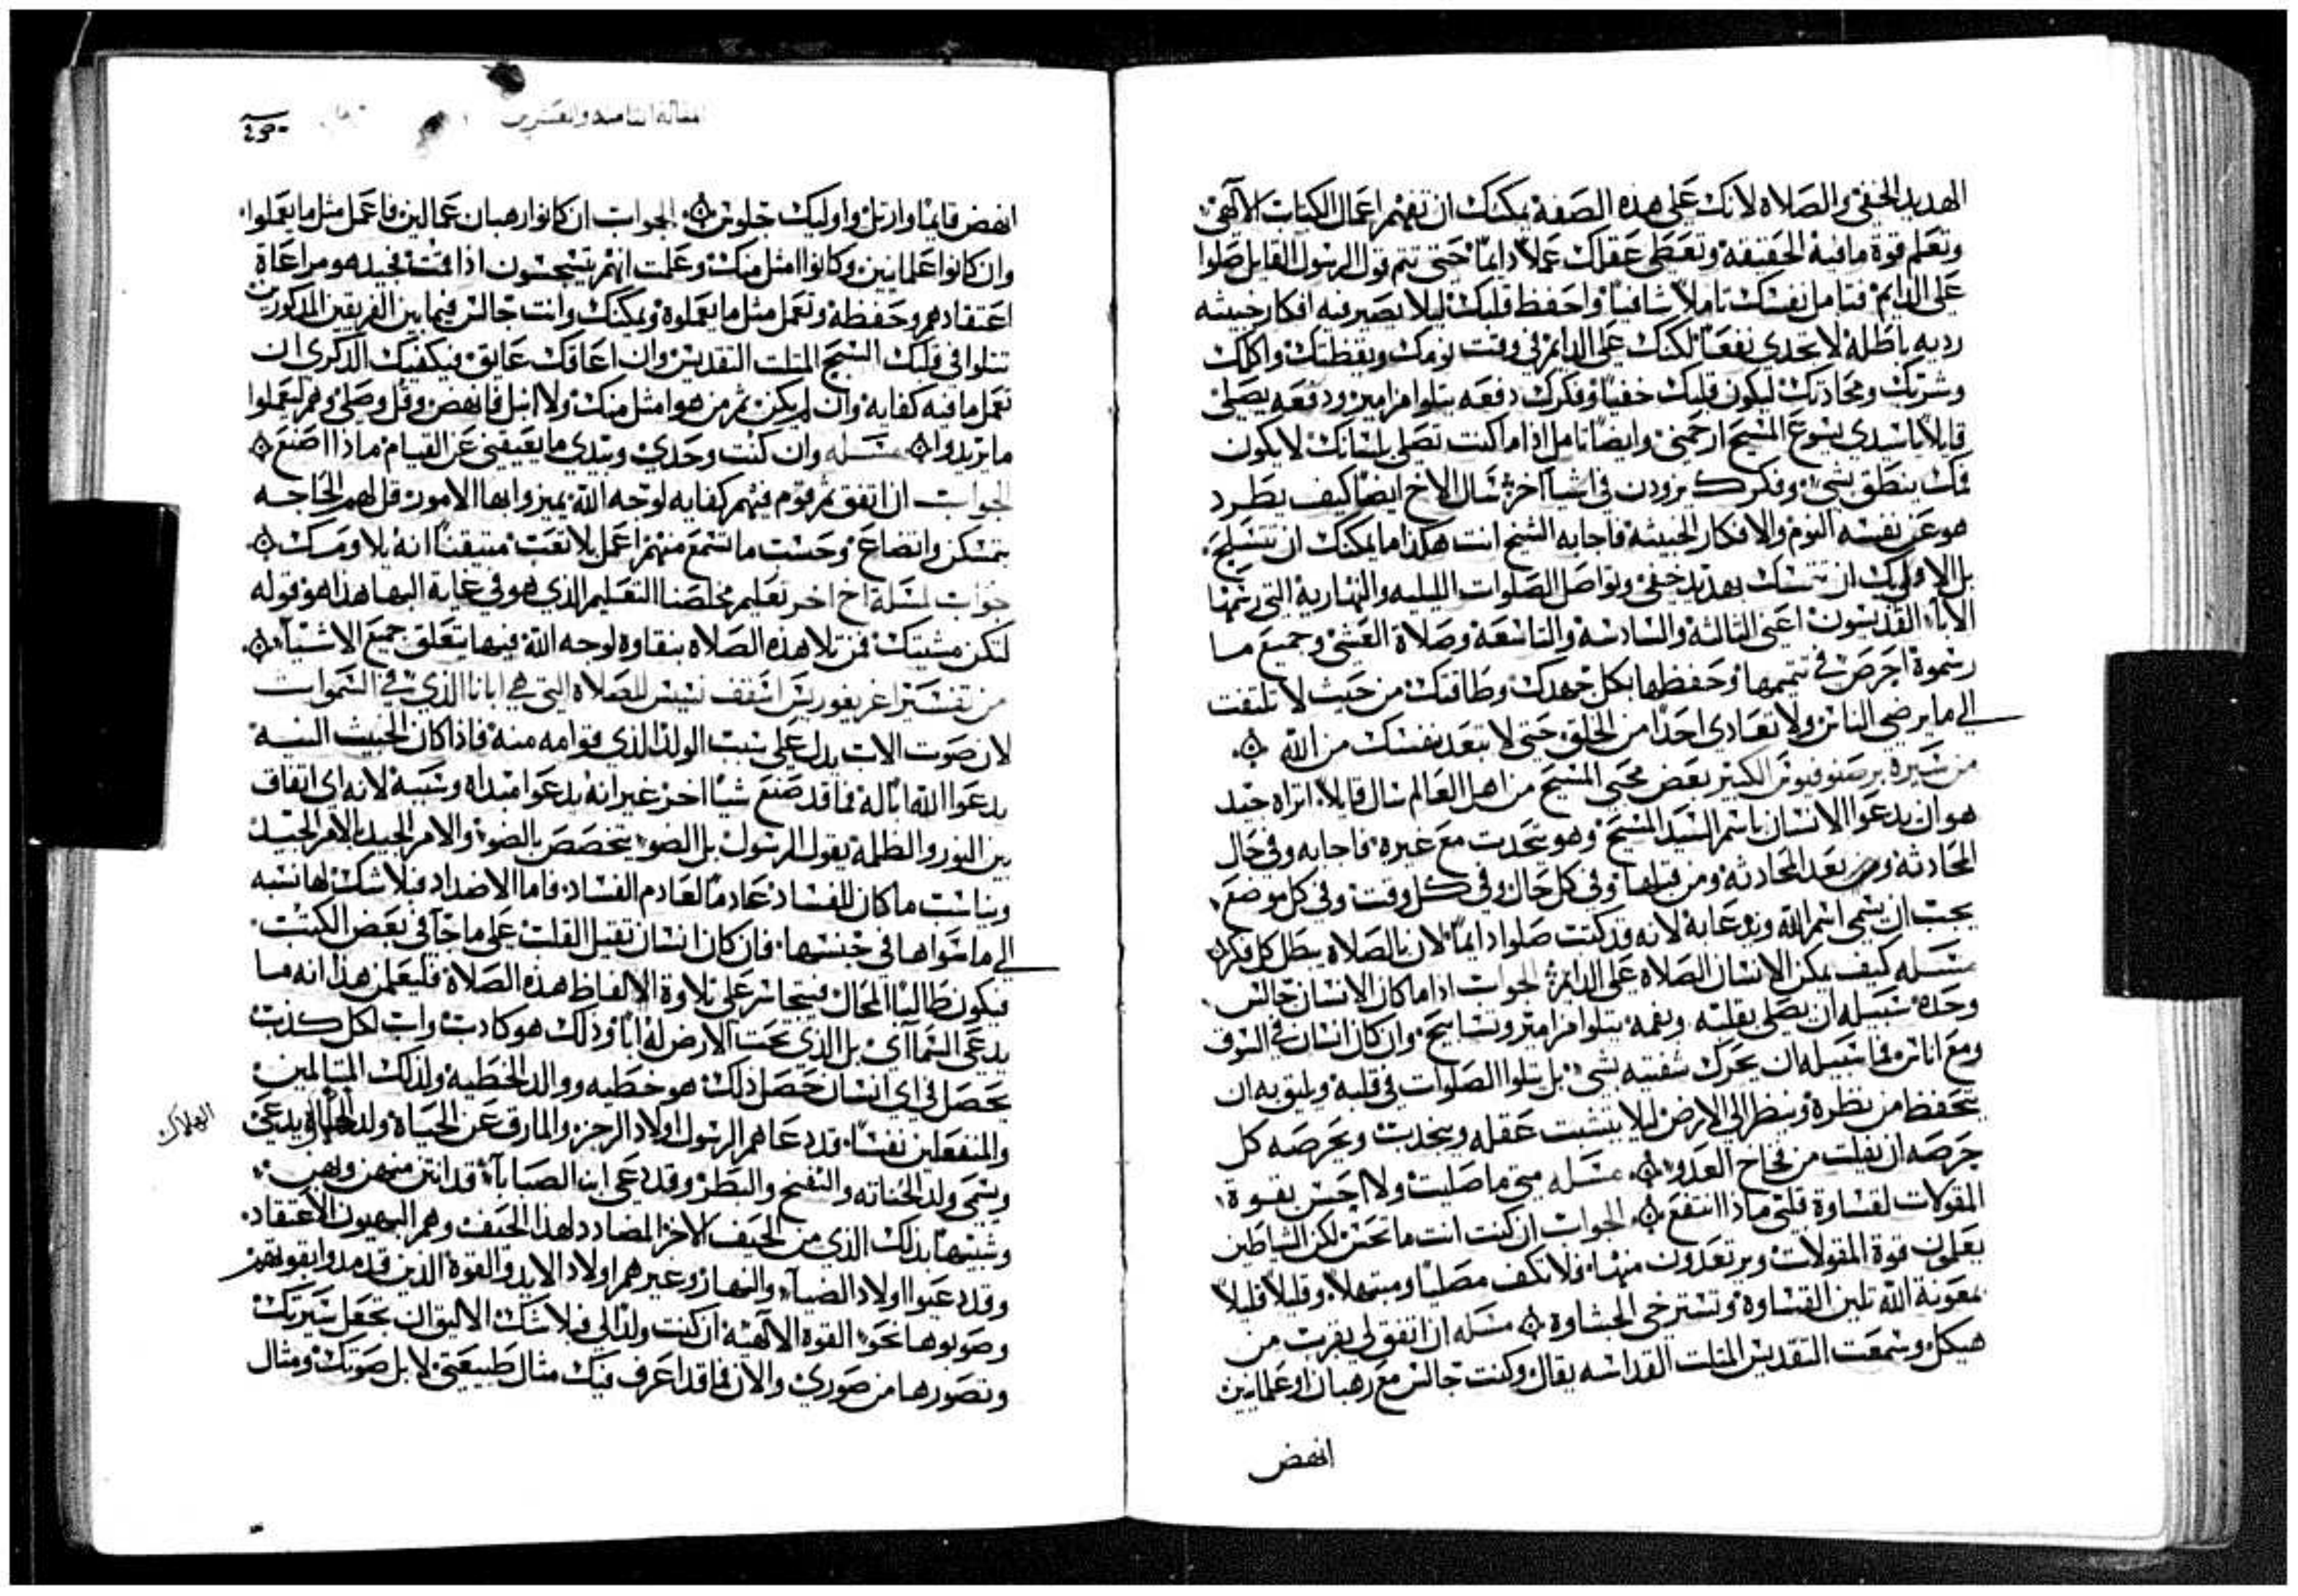 الهديد الخفي والصلاه لانك على هذه الصفه يمكنك ان تفهم اعمال الكتاب الالآهي
وتعلم قوة ما فيه الحقيقه وتعطى عقلك عملاً دايماً حتى تتم قول الرسول القايل صلوا
على الدايم فتامل نفسك تاملاً شافياً واحفظ قلبك ليلا يصير فيه افكار خبيثه
رديه باطله لا تجدي نفعاً لكنك على الدايم في وقت نومك ويقظتك واكلك
وشربك ومحادثتك ليكون قلبك خفياً وفكرك دفعه يتلوا مزامير ودفعه يصلى
قايلاً يا سيدي يسوع المسيح ارحمني وايضاً تامل اذا ما كنت تصلى بلسانك لا يكون
فمك ينطق بشي وفكرك يرودن في اشيا اخر سال الاخ ايضاً كيف يطرد
هو عن نفسه النوم والافكار الخبيثه فاجابه الشيخ انت هكذا ما يمكنك ان تتسلح
بل الاولى بك ان تتمسك بهديد خفي وتواصل الصلوات الليليه والنهاريه التى رسمها
الابا القديسون اعنى الثالثه والسادسه والتاسعه وصلاة العشى وجميع ما
رسموه احرص في تتميمها وحفظها بكل جهدك وطاقتك من حيث لا تلتفت
الى ما يرضى الناس ولا تعادى احداً من الخلق حتى لا تبعد نفسك من الله
من سيرة برصنوفيوس الكبير بعض محبى المسيح من اهل العالم سال قايلاً اتراه جيد
هو ان يدعوا الانسان باسم السيد المسيح وهو يتحدث مع غيره فاجابه وفي حال
المحادثه ومن بعد المحادثه ومن قبلها وفي كل حال وفي كل وقت وفي كل موضع
يجب ان يسمى اسم الله ويدعا به لانه قد كتب صلوا دايماً لان بالصلاه يبطل كل فكر
مسله كيف يمكن الانسان الصلاه على الدايم الجواب اذا ما كان الانسان جالس
وحده سبيله ان يصلى بقلبه وبفمه يتلوا مزامير وتسابيح وان كان انسان في السوق
ومع اناس فما سبيله ان يحرك شفتيه بشي بل يتلوا الصلوات في قلبه ويليق به ان
يتحفظ من نظره وينظر الى الارض ليلا يتشتت عقله ويتحدث ويحرصه كل
حرصه ان يفلت من فخاخ العدو مسله متى ما صليت ولا احس بقوة
المقولات لقساوة قلبى ماذا انتفع الجواب ان كنت انت ما تحس لكن الشياطين
يعلمون قوة المقولات ويرتعدون منها فلا تكف مصلياً ومبتهلاً وقليلاً قليلاً
بمعونة الله تلين القساوة وتسترخى الجساوة مسله ان اتفق لى بقرب من
هيكل وسمعت التقديس المثلث القداسه يقال وكنت جالس مع رهبان او علمانيين
انهض
المقاله الثامنه والعشرين
انهض قايماً وارتل واوليك جلوس الجواب ان كانوا رهبان عمالين فاعمل مثل ما يعملوا
وان كانوا علمانيين وكانوا امثل منك وعلمت انهم يتسجسون اذا قمت فجيد هو مراعاة
اعتقادهم وحفظه وتعمل مثل ما يعملوه ويمكنك وانت جالس فيما بين الفريقين المذكورين
تتلوا في قلبك التسبيح المثلث التقديس وان اعاقك عايق فيكفيك الذكرى ان
تعمل ما فيه كفايه وان لم يكن ثم من هو امثل منك ولا انبل فانهض وقل وصلى وهم ليعملوا
ما يريدوا مسله وان كنت وحدي وبيدي ما يعيقني عن القيام ماذا اصنع
الجواب ان اتفق ثم قوم فيهم كفايه لوجه الله يميزوا بها الامور قل لهم الحاجه
بتمسكن واتضاع وحسب ما تسمع منهم اعمل بلا تعب متيقناً انه بلا ومك
جواب لمسلة اخ اخر تعليم مخلصنا التعليم الذي هو في غاية البها هذا هو قوله
لتكن مشيتك فمن تلا هذه الصلاه بنقاوه لوجه الله فيها يتعلق جميع الاشياء
من تفسير اغريغوريس اسقف نيسس للصلاه التى هي ابانا الذي في السموات
لان صوت الاب يدل على سبب الولد الذي قوامه منه فاذا كان الخبيث النيه
يدعوا الله اباً له فما قد صنع شياً اخر غير انه يدعوا مبداه وسببه لانه اى اتفاق
بين النور والظلمه يقول الرسول بل الضو يتخصص بالضو والامر الجيد بالامر الجيد
ويناسب ما كان للفساد عادماً لعادم الفساد فاما الاضداد فلا شك لها نسبه
الى ما سواها في جنسها فان كان انسان ثقيل القلب على ما جآ في بعض الكتب
فيكون طالباً المحال فيتجاسر على تلاوة الالفاظ هذه الصلاة فليعلمن هذا انه ما
يدعى السمآاي بل الذي تحت الارض له اباً وذلك هو كادب واب لكل كذب
يحصل في اي انسان حصل ذلك هو خطيه ووالد الخطيه ولذلك المتالمين
والمنفعلين نفساً قد دعاهم الرسول اولاد الرجز والمارق عن الحياة ولد الهلاك يدعى
ويسمى ولد الخناثه والتفنج والبطر وقد دعى ابن الصبايآ قد انتن منهن ولهن
وشبيهاً بذلك الذي من الحيف الاخر المضاد لهذا الحيف وهم البهيون الاعتقاد
وقد دعيوا اولاد الضيآ والنهار وغيرهم اولاد الايد والقوة الذين قد مدوا بقوتهم
وصوبوها نحو القوة الالآهيه ان كنت ولداً لي فلا شك الاليق ان تجعل سيرتك
وتصورها من صوري والان فما قد اعرف فيك مثال طبيعتي لا بل صوتك ومثال